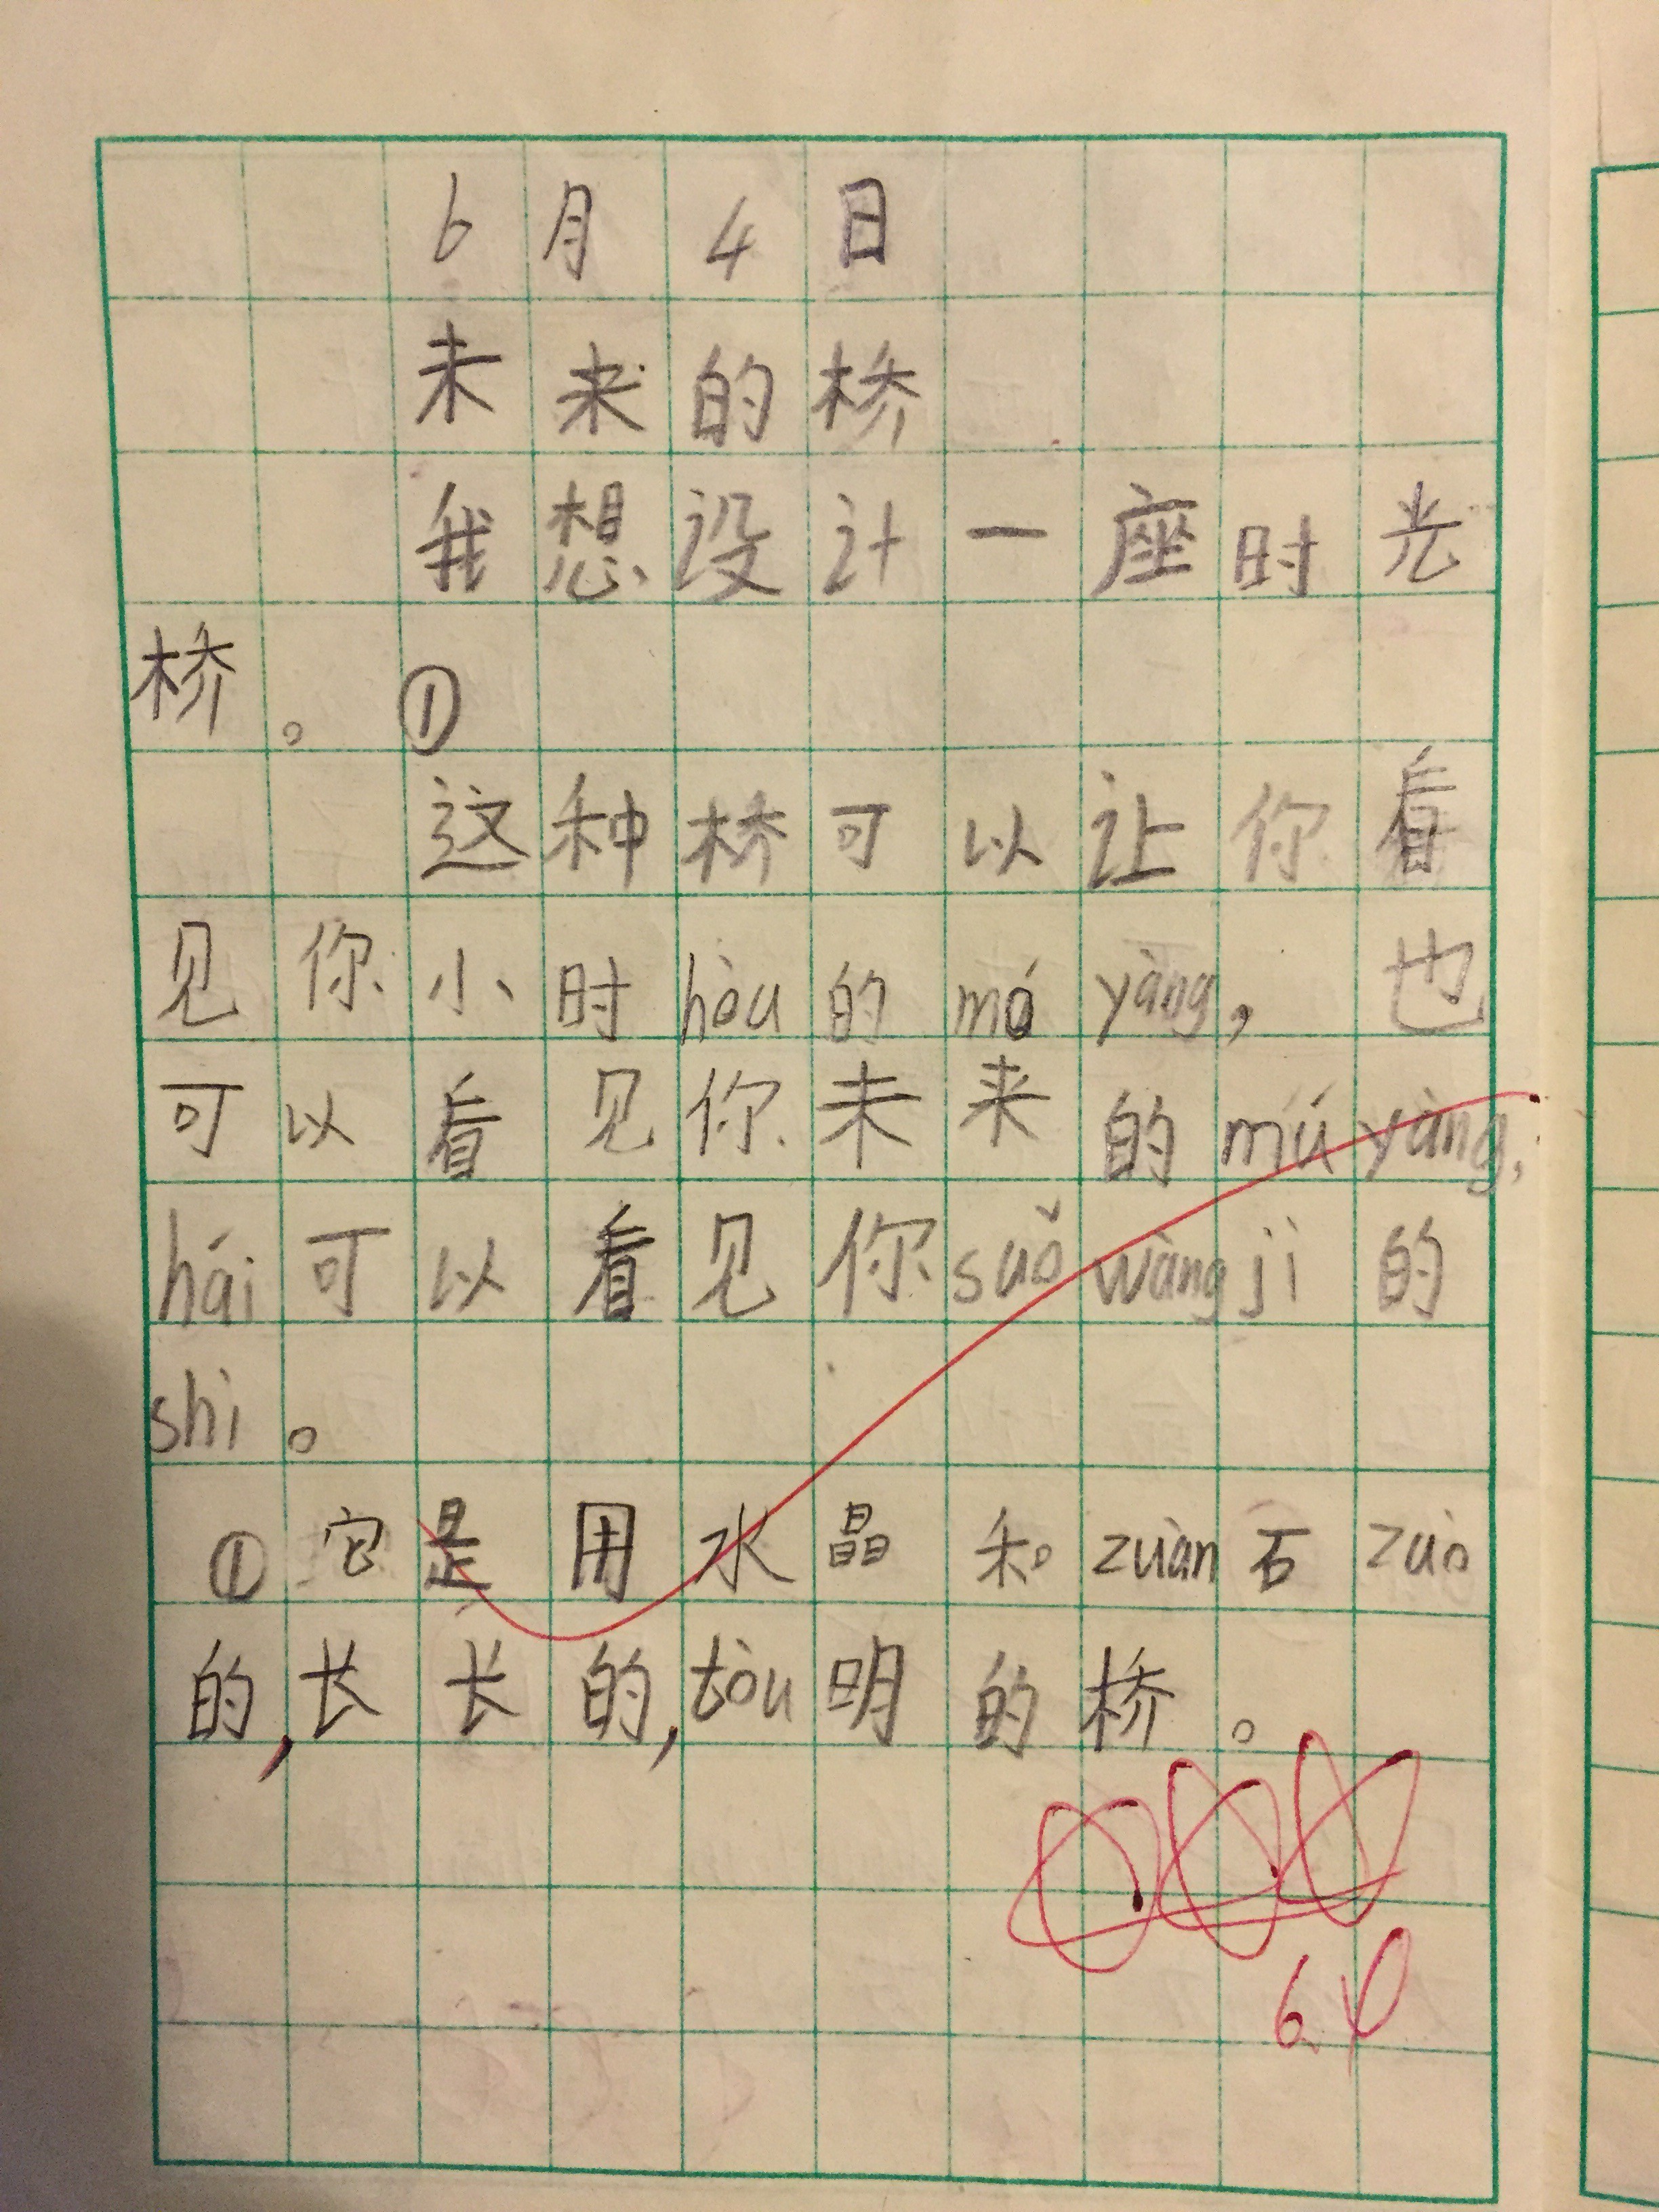 6月4日
未来的桥
我想设计一座时光
桥。①
这种桥可以让你看
见你小时hòu的mó yàng，也
可以看见你未来的mú yàng，
hái可以看见你suǒ wàng jì的
shì。
①它是用水晶和zuàn石zào
的，长长的，tòu明的桥。